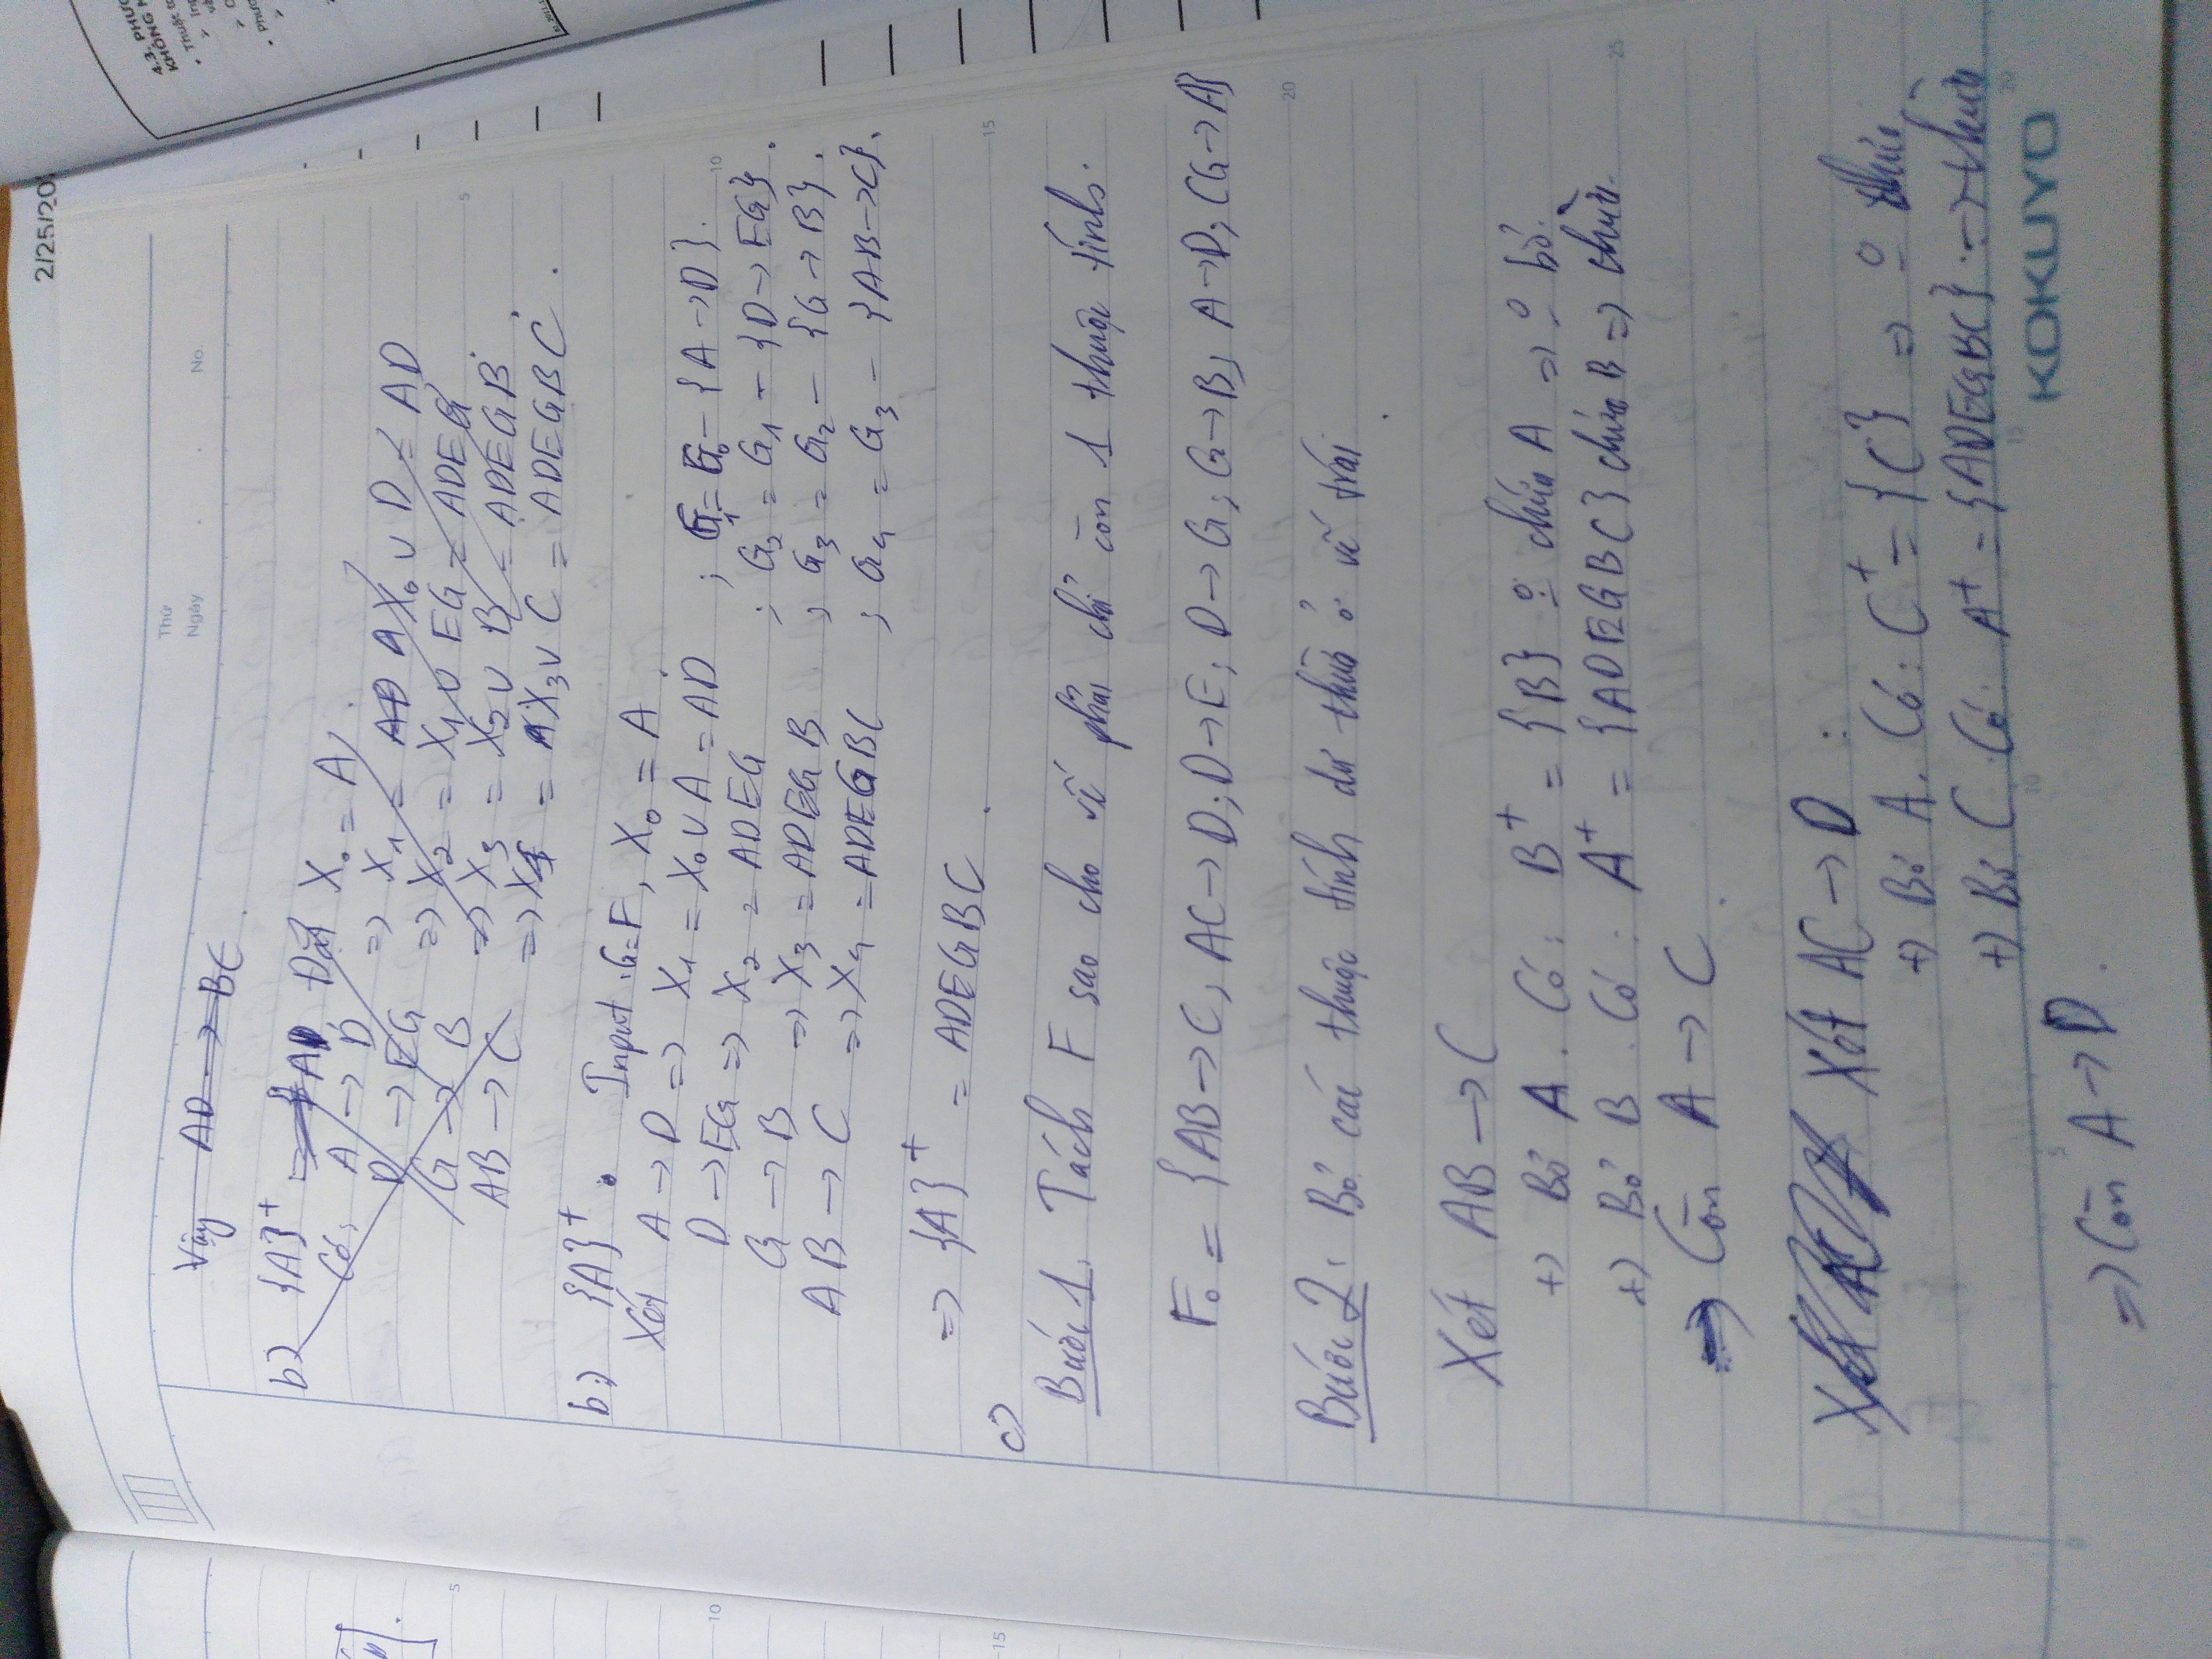 2/25/20
4.3. PHƯƠ
KHÔNG
Thuật t
Thứ
Ngày . . No.
Vậy AD → BC.
b) {A}⁺ = {AD, Đặt X₀ = A.
Có: A → D => X₁ = AD A X₀ ∪ D = AD
D → EG => X₂ = X₁ ∪ EG = ADEG.
G → B => X₃ = X₂ ∪ B = ADEGB.
AB → C => X₄ = X₃ ∪ C = ADEGBC.
b:) {A}⁺. Input: G=F, X₀ = A.
Xét A → D => X₁ = X₀ ∪ A = AD ; G₁ = G₀ - {A → D}.
D → EG => X₂ = ADEG ; G₂ = G₁ - {D → EG}.
G → B => X₃ = ADEGB ; G₃ = G₂ - {G → B}.
AB → C => X₄ = ADEGBC ; G₄ = G₃ - {AB → C}.
=> {A}⁺ = ADEGBC.
c)
Bước 1. Tách F sao cho vế phải chỉ còn 1 thuộc tính.
F₀ = {AB → C; AC → D; D → E; D → G; G → B; A → D; CG → A}
Bước 2: Bỏ các thuộc tính dư thừa ở vế trái.
Xét AB → C
+) Bỏ A. Có: B⁺ = {B} ⍛ chứa A => ⍛ bỏ.
+) Bỏ B. Có: A⁺ = {ADEGBC} chứa B => thừa.
=> Còn A → C.
Xét AC → D :
+) Bỏ A. Có: C⁺ = {C} => ⍛ thừa.
+) Bỏ C. Có: A⁺ = {ADEGBC} → thừa
=> Còn A → D.
KOKUYO
5
10
15
20
25